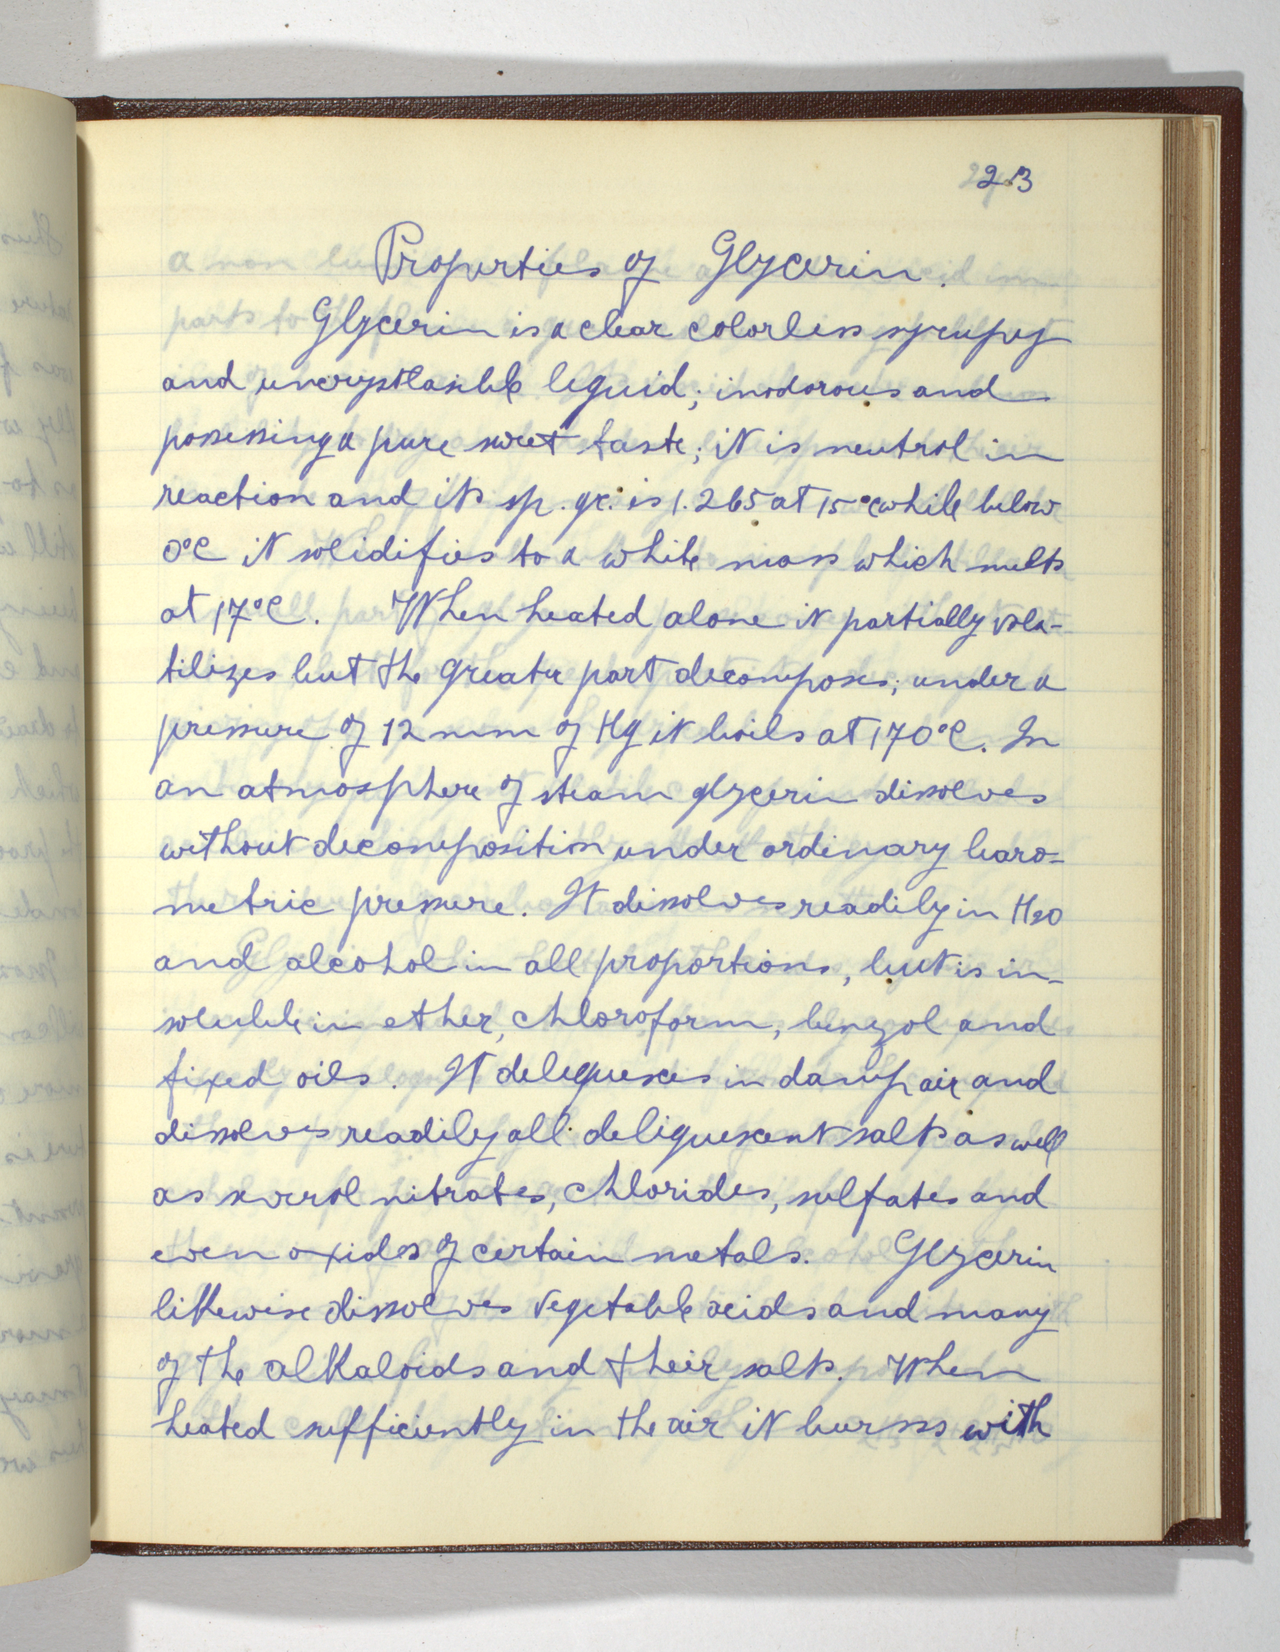 23
Properties of Glycerin.
Glycerin is a clear colorless syrupy
and uncrystlasible liquid; inodorous and
possessing a pure sweet taste; it is neutrol in
reaction and its sp. gr. is 1.265 at 15°C while below
0°C it solidifies to a white mass which melts
at 17°C. When heated alone it partially vola-
tilizes but the greater part decomposes; under a
pressure of 12 mm of Hg it boils at 170°C. In
an atmosphere of steam glycerin dissolves
without decomposition under ordinary baro-
metric pressure. It dissolves readily in H2O
and alcohol in all proportions, but is in-
soluble in ether, chloroform, benzol and
fixed oils. It deliquesces in damp air and
dissolves readily all deliquescent salts as well
as several nitrates, chlorides, sulfates and
even oxides of certain metals. Glycerin
likewise dissolves vegetable acids and many
of the alkaloids and their salts. When
heated sufficiently in the air it burns with